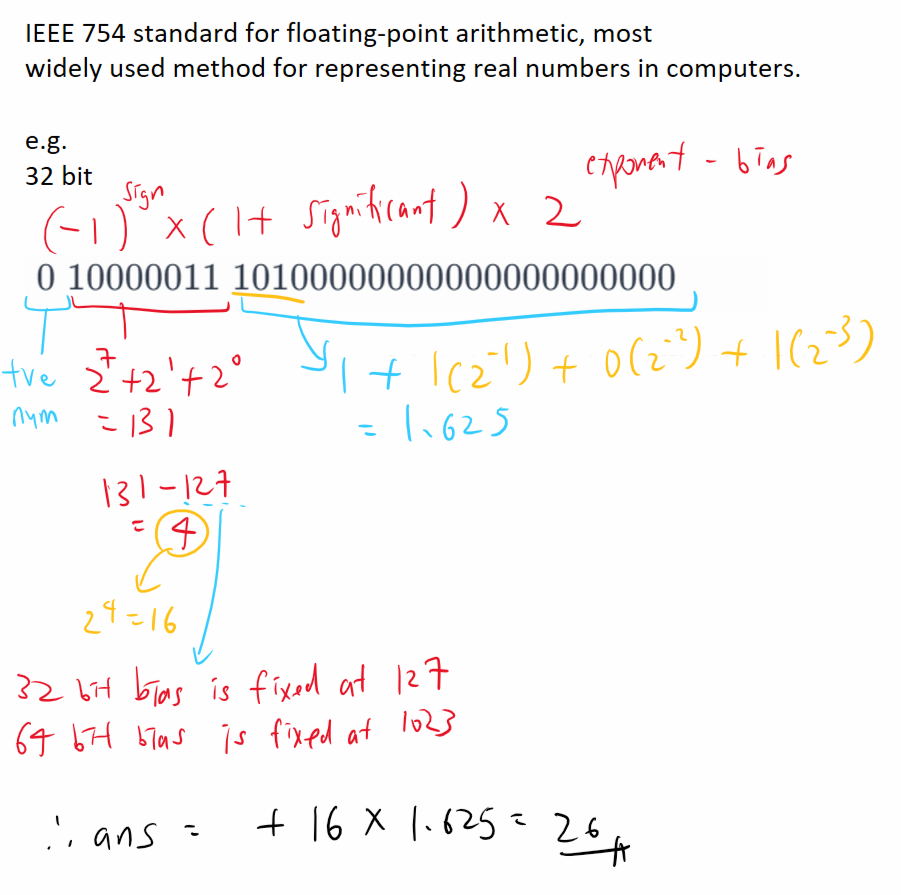 IEEE 754 standard for floating-point arithmetic, most
widely used method for representing real numbers in computers.
e.g.
32 bit
(-1)^sign × (1 + significant) × 2^exponent - bias
0 10000011 10100000000000000000000
+ve num
2^7 + 2^1 + 2^0
= 131
1 + 1(2^-1) + 0(2^-2) + 1(2^-3)
= 1.625
131 - 127
= 4
2^4 = 16
32 bit bias is fixed at 127
64 bit bias is fixed at 1023
∴ ans = + 16 × 1.625 = 26